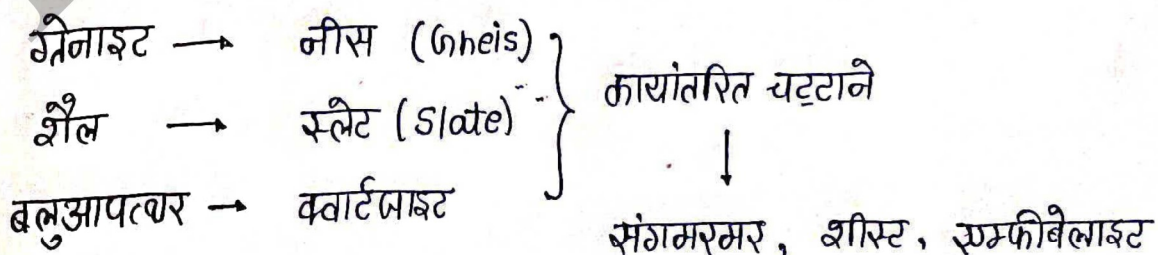 ग्रेनाइट → नीस (Gneis)
शैल → स्लेट (Slate)
बलुआपत्थर → क्वार्टजाइट
कायांतरित चट्टाने
↓
संगमरमर, शीस्ट, एम्फीबेलाइट